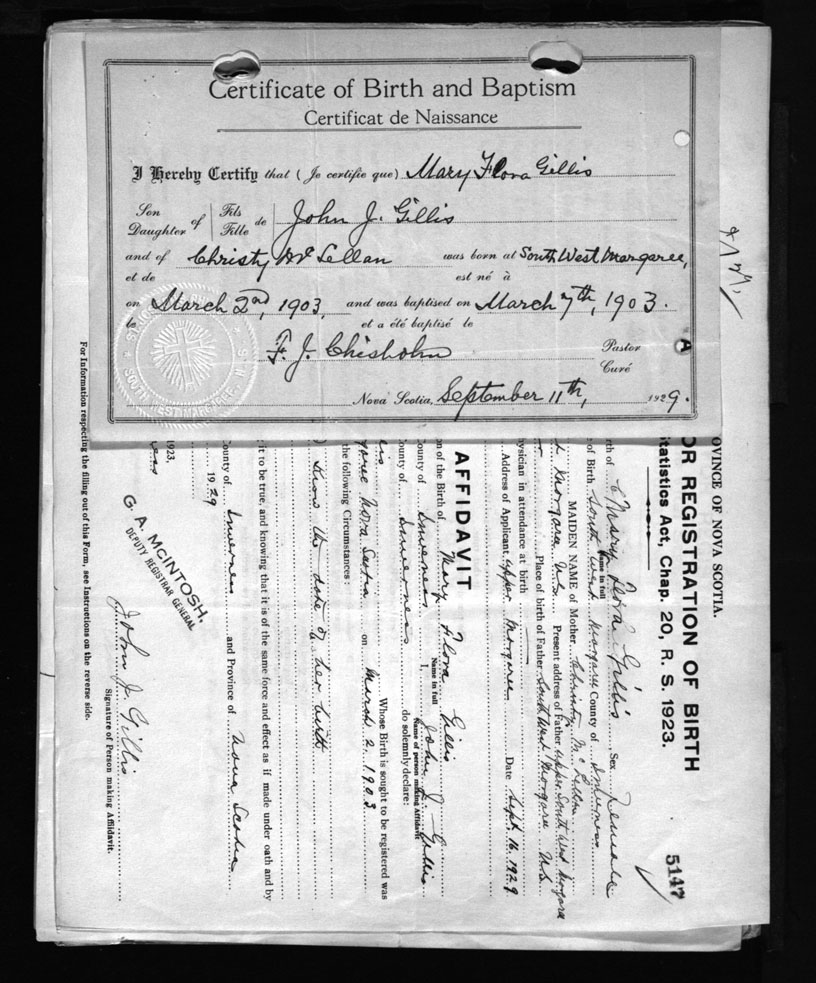 Certificate of Birth and Baptism
Certificat de Naissance
I Hereby Certify that (Je certifie que) Mary Flora Gillis
Son Daughter of | Fils Fille de John J. Gillis
and of Christy McLellan was born at South West Margaree,
et de est né à
on March 2nd, 1903, and was baptised on March 7th, 1903.
le et a été baptisé le
F. J. Chisholm Pastor
Curé
Nova Scotia, September 11th, 1929.
SOUTH WEST MARGAREE, N.S.
A
OVINCE OF NOVA SCOTIA.
OR REGISTRATION OF BIRTH
tatistics Act, Chap. 20, R. S. 1923.
5147
rth of Mary Flora Gillis Sex Female
Name in full
of Birth South West Margaree County of Inverness
MAIDEN NAME of Mother Christy McLellan
Margaree N.S. Present address of Father Upper South West Margaree
Place of birth of Father South West Margaree N.S.
ysician in attendance at birth
Address of Applicant Upper Margaree Date Sept. 16. 1929
AFFIDAVIT
on of the Birth of Mary Flora Gillis
Name in full
ounty of Inverness I, John J. Gillis
Name of person making Affidavit
ounty of Inverness do solemnly declare:
Whose Birth is sought to be registered was
garee Nova Scotia on March 2 1903
the following Circumstances:
I know the date of her birth
it to be true, and knowing that it is of the same force and effect as if made under oath and by
ounty of Inverness and Province of Nova Scotia
1929
1923,
G. A. McINTOSH,
DEPUTY REGISTRAR GENERAL
John J. Gillis
Signature of Person making Affidavit.
For Information respecting the filling out of this Form, see Instructions on the reverse side.